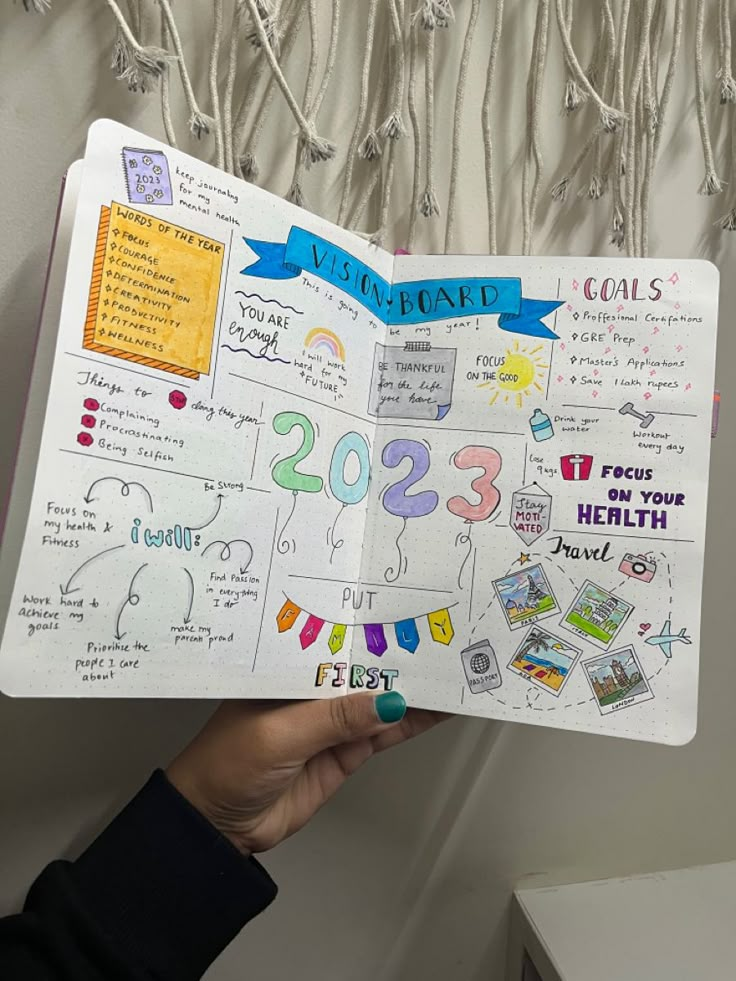 2023
keep journaling
for my
mental health
WORDS OF THE YEAR
FOCUS
COURAGE
CONFIDENCE
DETERMINATION
CREATIVITY
PRODUCTIVITY
FITNESS
WELLNESS
VISION BOARD
This is going to be my year!
YOU ARE
enough
I will work
hard for my
"FUTURE"
BE THANKFUL
for the life
you have
FOCUS
ON THE GOOD
GOALS
Proffesional Certifations
GRE Prep
Master's Applications
Save 1 lakh rupees
Things to STOP doing this year
Complaining
Procrastinating
Being Selfish
2023
Drink your
water
Workout
every day
lose
9kgs
FOCUS
ON YOUR
HEALTH
Stay
MOTI-
VATED
i will:
Be Strong
Focus on
my health &
Fitness
Find Passion
in everything
I do
Work hard to
achieve my
goals
Prioritise the
people I care
about
make my
parents proud
PUT
FAMILY
FIRST
Travel
PARIS
ITALY
LONDON
PASSPORT